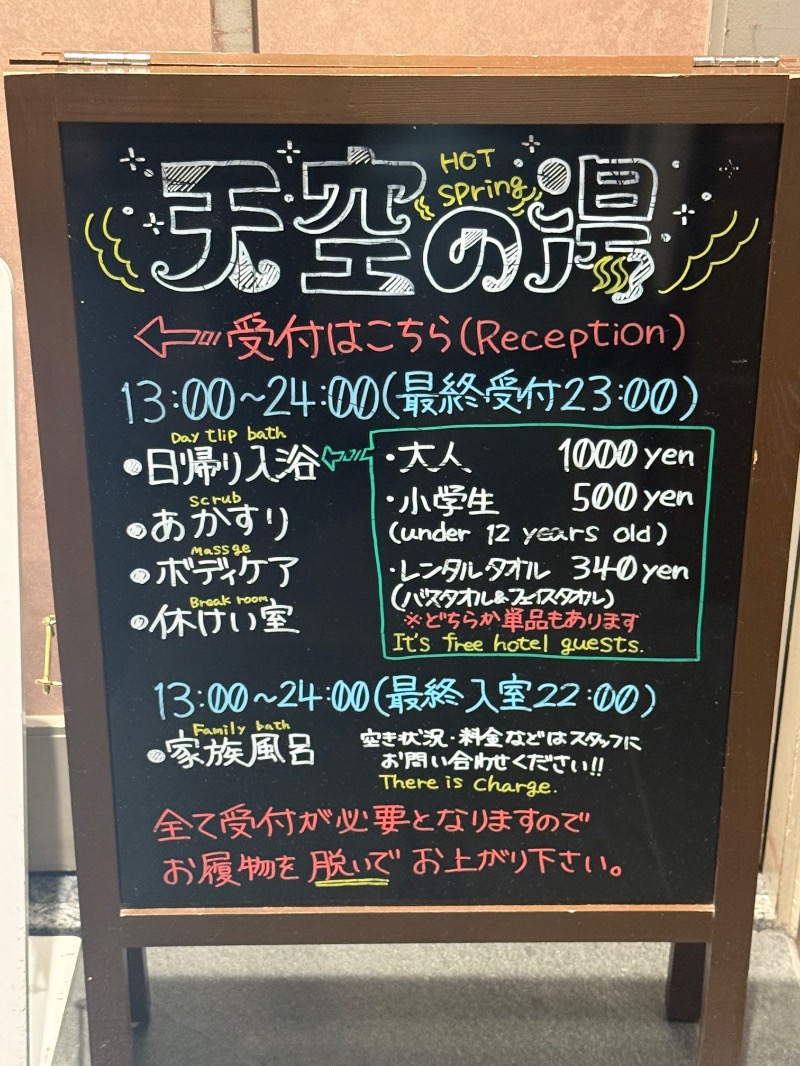 HOT
Spring
天空の湯
受付はこちら(Reception)
13:00~24:00(最終受付23:00)
Day tlip bath
●日帰り入浴
scrub
●あかすり
Massge
●ボディケア
Break room
●休けい室
・大人 1000yen
・小学生 500yen
(under 12 years old)
・レンタルタオル 340yen
(バスタオル&フェイスタオル)
※どちらか単品もあります
It's free hotel guests.
13:00~24:00(最終入室22:00)
Family bath
●家族風呂
空き状況・料金などはスタッフに
お問い合わせください!!
There is charge.
全て受付が必要となりますので
お履物を脱いでお上がり下さい。